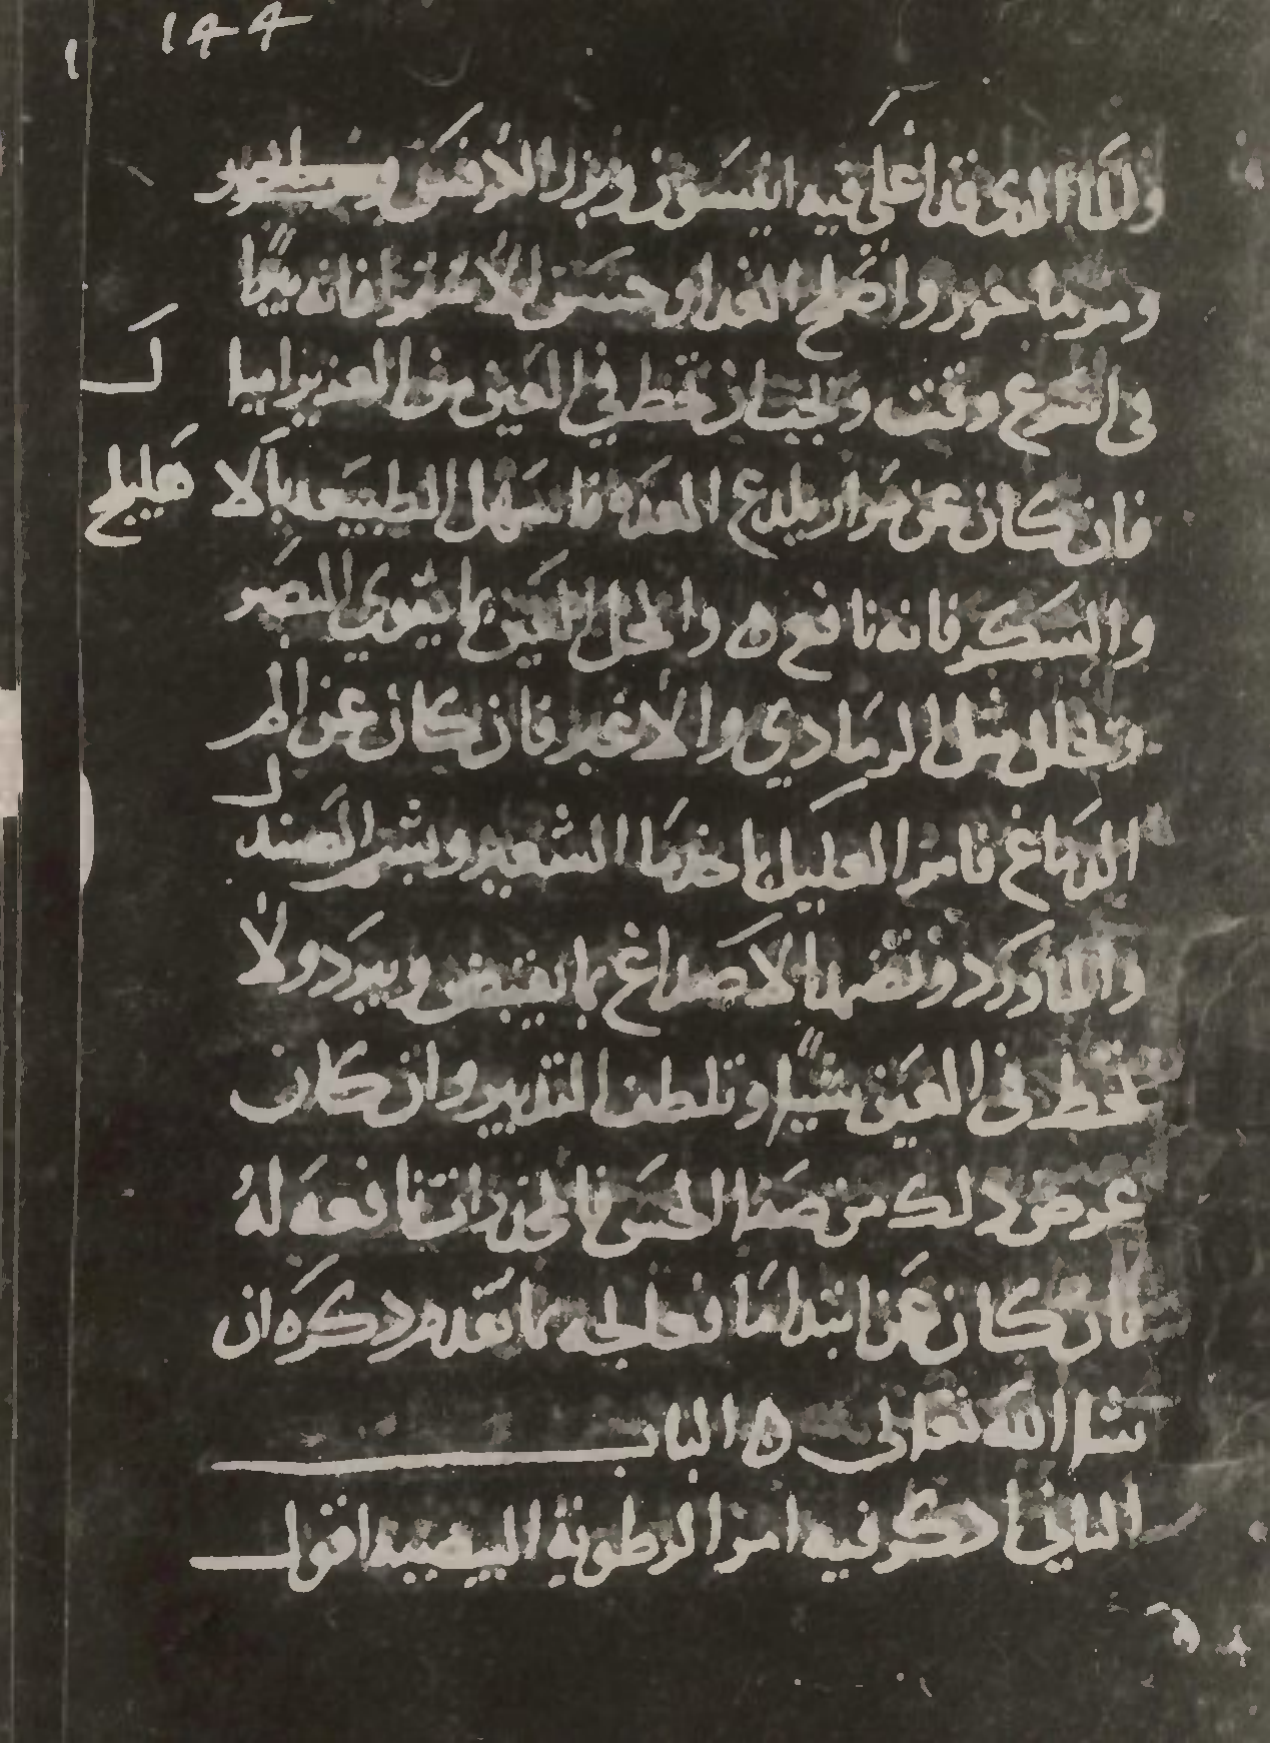 144
وللما الدى قد اغلى فيه انيسون وبزر الكرفس
ومرماحور واصلح الغدا وحسن الاغتدا فانه يبرا
فى اسرع وقت ويجب ان تحط في العين من العزيز اميا
فان كان عن مرار يلدع المعده فاسهل الطبيعه بالا هليلج
والسكر فانه نافع ه واكحل العين بما يقوي البصر
وتحلل مثل الرمادي والاغبر فان كان عن الم
الدماغ فامر العليل باخد ما الشعير وشم الصندل
والماورد وتضمد الاصداغ بما يقبض ويبرد ولا
تحط فى العين شيا وتلطف التدبير وان كان
عرض دلك من صفا الحس فالمخدرات نافعه له
فان كان عن ابتدا ما فعالجه بما تقدم دكره ان
شا الله تعالى ه الباب
الثاني ادكر فيه امر الرطوبة البيضيه اقول